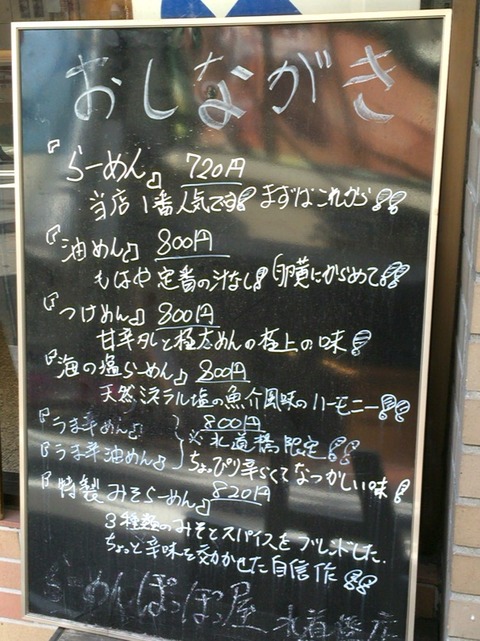 おしながき
『らーめん』 720円
当店1番人気です! まずはこれから!!
『油めん』 800円
もはや定番の汁なし! 卵黄にからめて!!
『つけめん』 800円
甘辛タレと極太めんの極上の味!
『海の塩らーめん』 800円
天然ミネラル塩の魚介風味のハーモニー!!
『うま辛めん』 800円
※水道橋限定!!
『うま辛油めん』 ちょっぴり辛くてなつかしい味!
『特製みそらーめん』 820円
3種類のみそとスパイスをブレンドした.
ちょっと辛味を効かせた自信作!!
めんぽっぽ屋 水道橋店